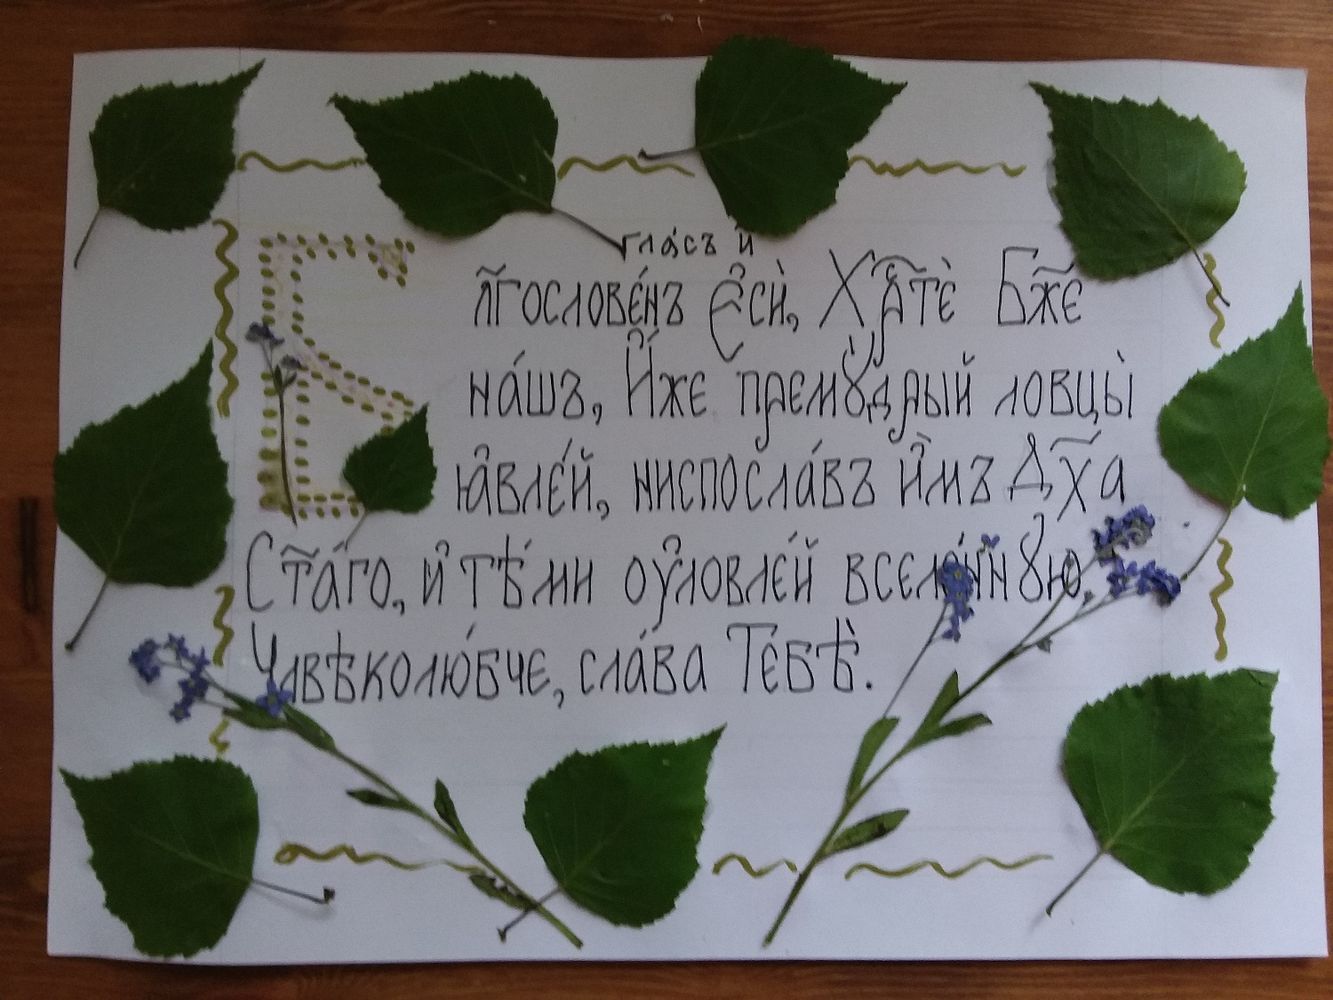 гла́съ и҃
Бл҃гослове́нъ є҆сѝ, Хрⷭ҇тѐ Бж҃є
на́шъ, И҆́же прємꙋ̑дрый ловцы̀
ꙗ҆влє́й, ниспосла́въ и҆̀мъ Дх҃а
Ст҃а́го, и҆ тѣ́ми оу҆ловлє́й всєлє́ннꙋю
Члвѣколю́бчє, сла́ва Тєбѣ̀.